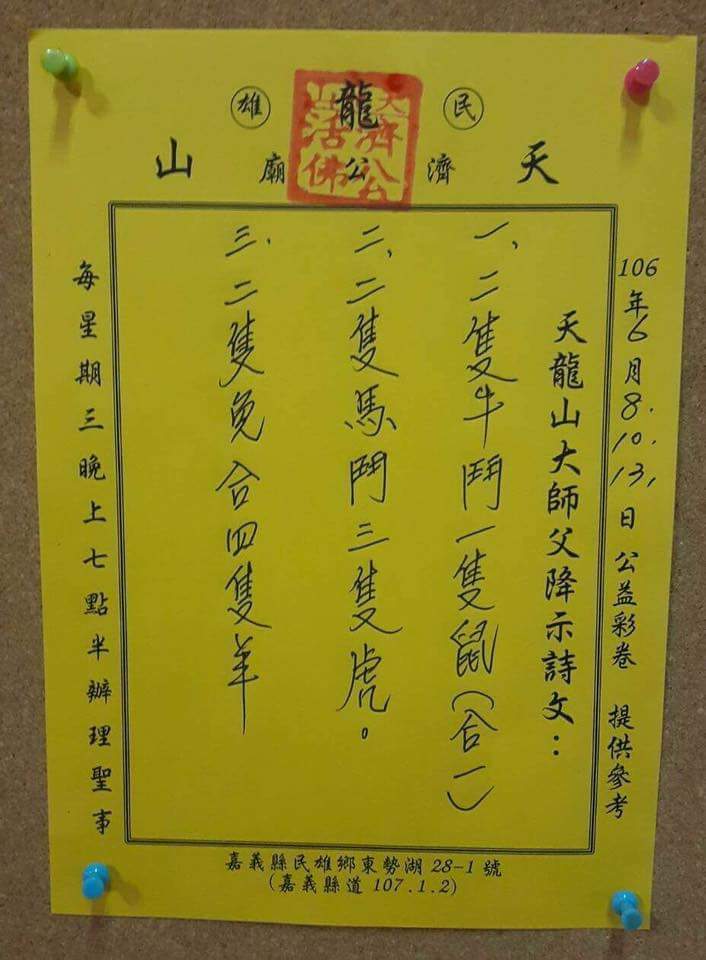 民雄
天龍山
濟公廟
濟公
活佛
106年6月8.10.13,日公益彩卷 提供參考
天龍山大師父降示詩文：
一、二隻牛鬥一隻鼠(合一)
二、二隻馬鬥三隻虎。
三、二隻兔合四隻羊
每星期三晚上七點半辦理聖事
嘉義縣民雄鄉東勢湖28-1號
(嘉義縣道107.1.2)